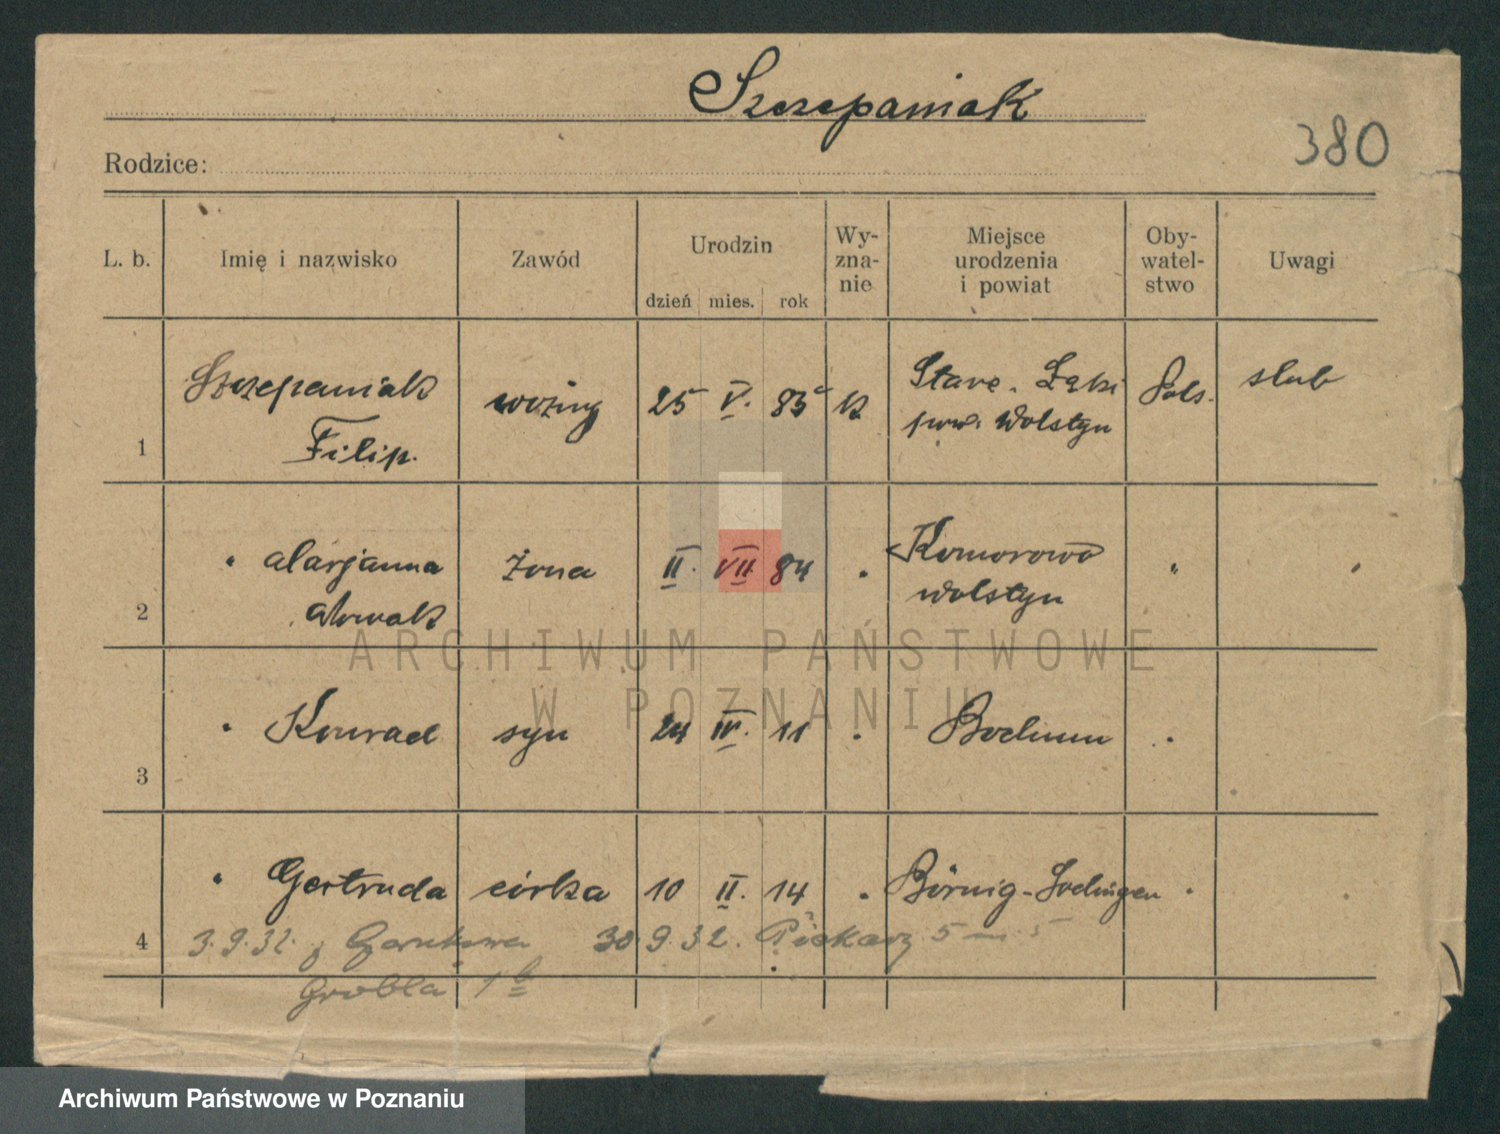 Szczepaniak
380
Rodzice:
L. b. Imię i nazwisko Zawód Urodzin dzień mies. rok Wy-zna-nie Miejsce urodzenia i powiat Oby-watel-stwo Uwagi
1 Szczepaniak Filip. woźny 25 V. 83 k Stare Łąki pow. Wolstyn Pols. slub
2 " Marjanna Nowak żona II. VII 84 " Komorowo Wolstyn " "
3 " Konrad syn 24 IV. 11 " Bochum "
4 " Gertruda córka 10 II. 14 " Börnig-Sodingen "
3.9.32. z Czarnkowa 30.9.32. Piekary 5
Grobla 1
ARCHIWUM PAŃSTWOWE
W POZNANIU
Archiwum Państwowe w Poznaniu